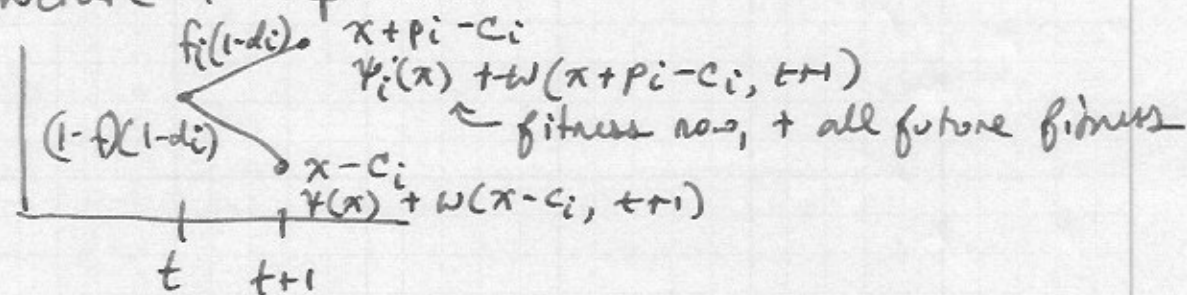 fᵢ(1-dᵢ) x + pᵢ - cᵢ
ψᵢ(x) + w(x + pᵢ - cᵢ, t+1)
(1-f)(1-dᵢ) fitness now, + all future fitness
x - cᵢ
ψ(x) + w(x - cᵢ, t+1)
t t+1